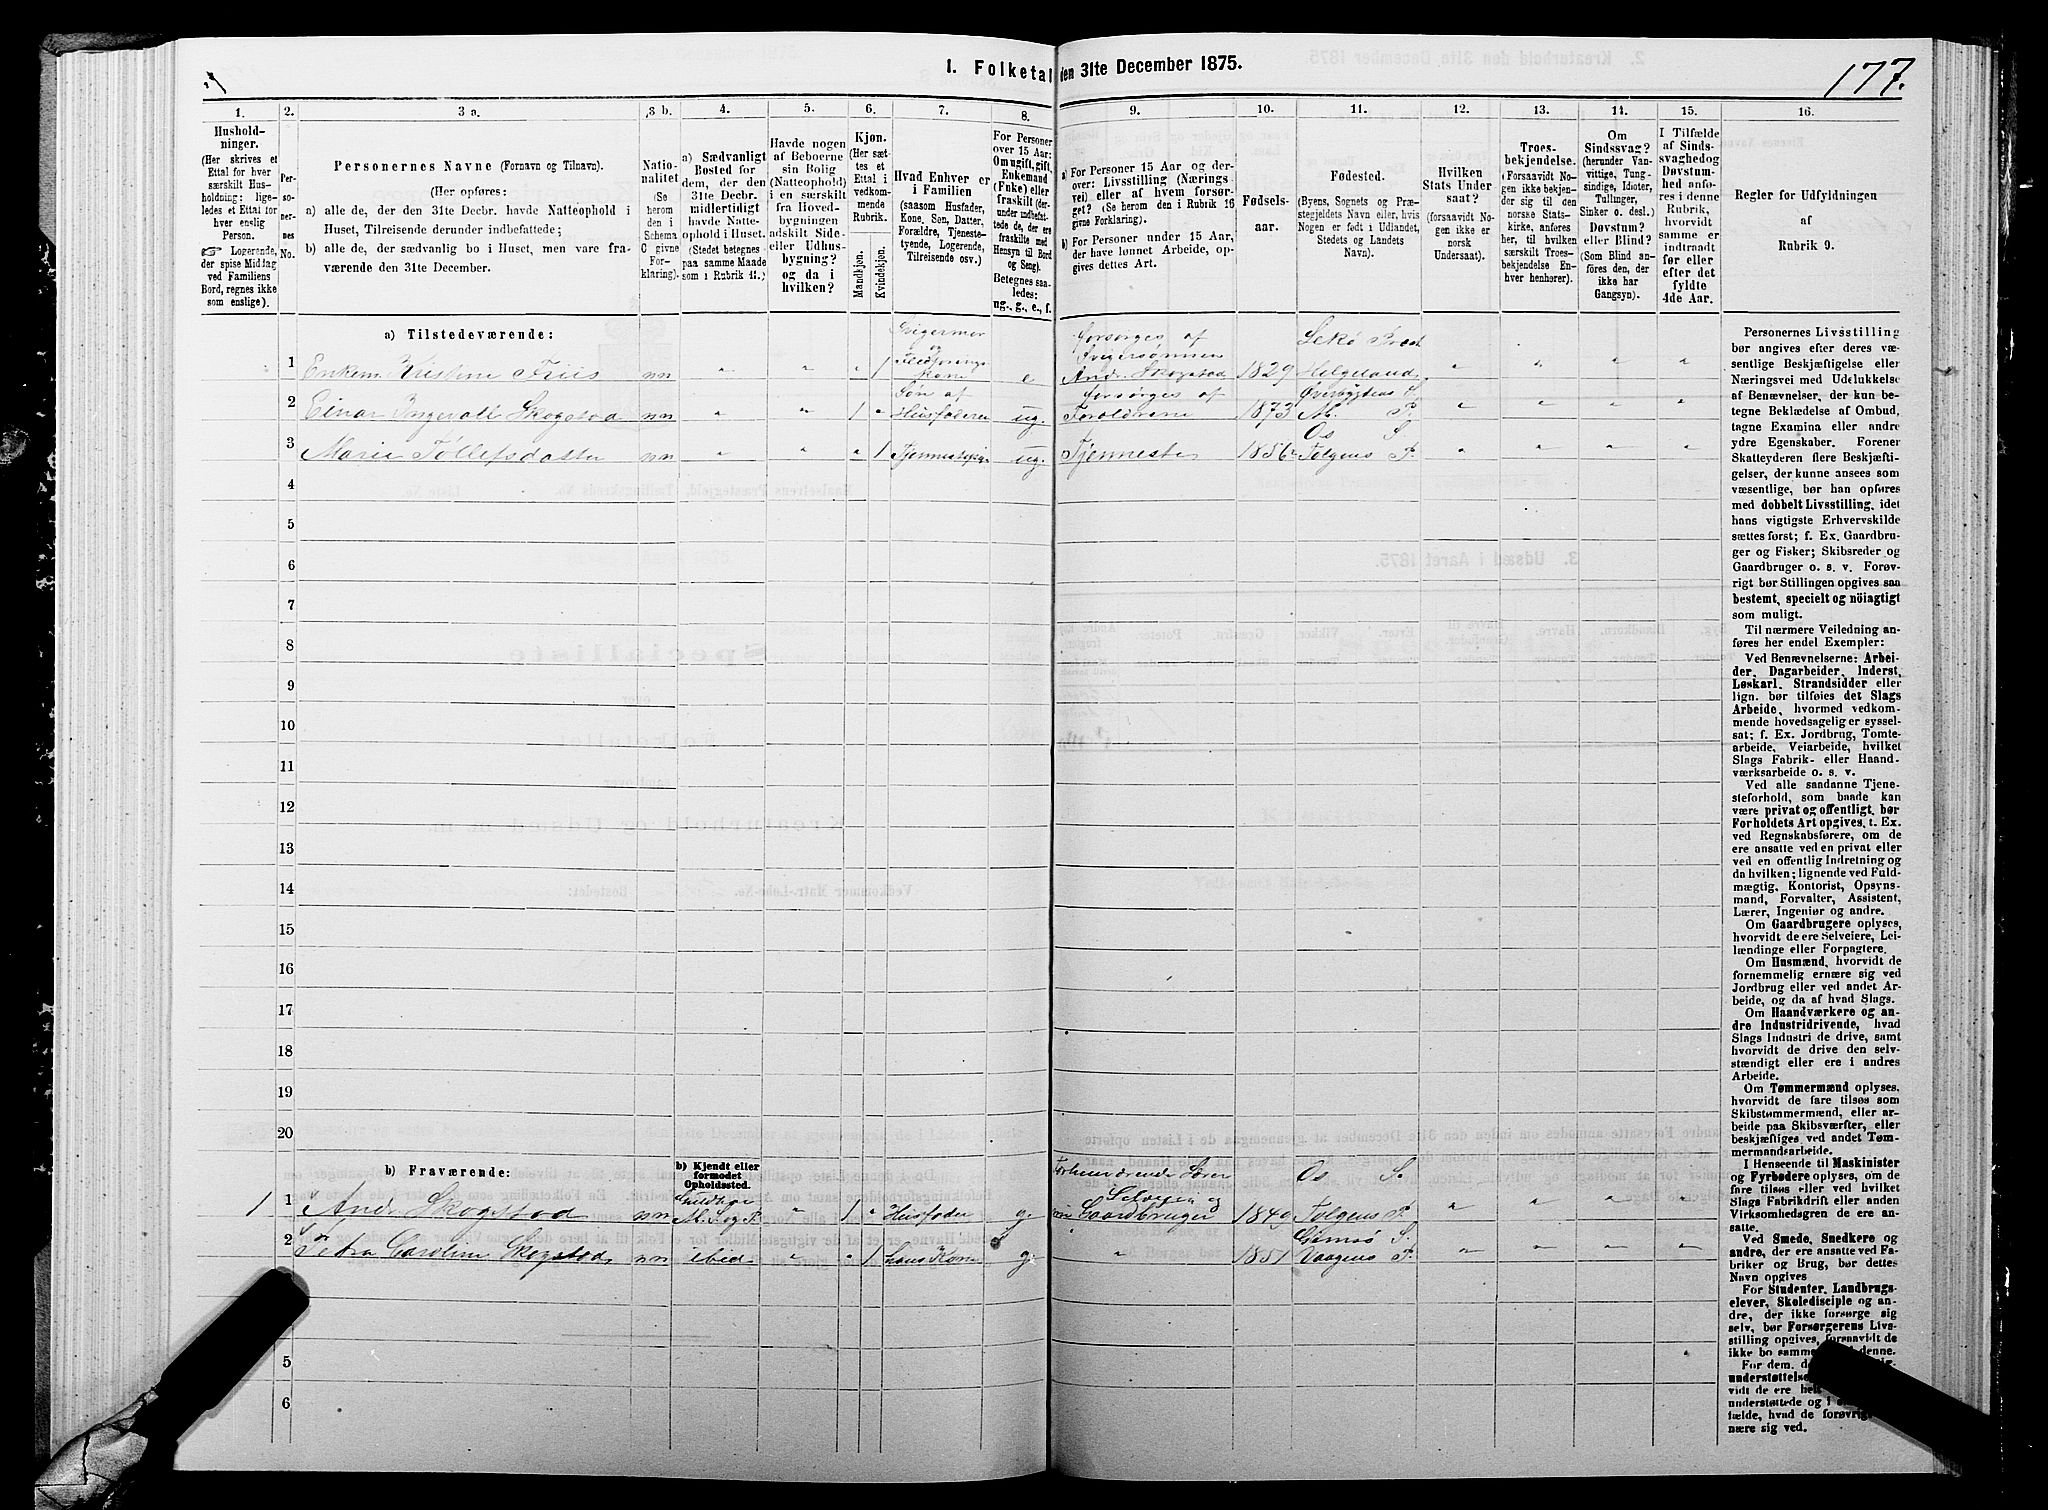 1. Folketal den 31te December 1875.
177.
1.
Hushold-
ninger.
(Her skrives et
Ettal for hver
særskilt Hus-
holdning; lige-
ledes et Ettal for
hver enslig
Person.
☞ Logerende,
der spise Middag
ved Familiens
Bord, regnes ikke
som enslige).
2.
Per-
so-
ner-
nes
No.
3 a.
Personernes Navne (Fornavn og Tilnavn).
(Her opføres:
a) alle de, der den 31te Decbr. havde Natteophold i
Huset, Tilreisende derunder indbefattede;
b) alle de, der sædvanlig bo i Huset, men vare fra-
værende den 31te December.
3 b.
Natio-
nalitet
(Se
herom
den i
Schema
C givne
For-
klaring).
4.
a) Sædvanligt
Bosted for
dem, der den
31te Decbr.
midlertidigt
havde Natte-
ophold i Huset.
(Stedet betegnes
paa samme Maade
som i Rubrik 11.)
5.
Havde nogen
af Beboerne
sin Bolig
(Natteophold)
i en særskilt
fra Hoved-
bygningen
adskilt Side-
eller Udhus-
bygning?
og da i
hvilken?
6.
Kjøn.
(Her sæt-
tes et
Ettal i
vedkom-
mende
Rubrik.
Mandkjøn.
Kvindekjøn.
7.
Hvad Enhver er
i Familien
(saasom Husfader,
Kone, Søn, Datter,
Forældre, Tjeneste-
tyende, Logerende,
Tilreisende osv.)
8.
For Personer
over 15 Aar:
Om ugift, gift,
Enkemand
(Enke) eller
fraskilt (der-
under indbefat-
tede de, der ere
fraskilte med
Hensyn til Bord
og Seng).
Betegnes saa-
ledes:
ug., g., e., f.
9.
a) For Personer 15 Aar og der-
over: Livsstilling (Nærings-
vei) eller af hvem forsør-
get? (Se herom den i Rubrik 16
givne Forklaring).
b) For Personer under 15 Aar,
der have lønnet Arbeide, op-
gives dettes Art.
10.
Fødsels-
aar.
11.
Fødested.
(Byens, Sognets og Præ-
stegjeldets Navn eller, hvis
Nogen er født i Udlandet,
Stedets og Landets
Navn).
12.
Hvilken
Stats Under-
saat?
(forsaavidt No-
gen ikke er
norsk
Undersaat).
13.
Troes-
bekjendelse.
(Forsaavidt No-
gen ikke bekjen-
der sig til den
norske Stats-
kirke, anføres
her, til hvilken
særskilt Troes-
bekjendelse En-
hver henhører).
14.
Om
Sindssvag?
(herunder Van-
vittige, Tung-
sindige, Idioter,
Tullinger,
Sinker o. desl.)
Døvstum?
eller Blind?
(Som Blind an-
føres den, der
ikke har
Gangsyn).
15.
I Tilfælde
af Sinds-
svaghed og
Døvstum-
hed anfø-
res i denne
Rubrik,
hvorvidt
samme er
indtraadt
før eller
efter det
fyldte
4de Aar.
16.
Regler for Udfyldningen
af
Rubrik 9.
a) Tilstedeværende:
Svigermor
og
Kone
forsørges af
Svigersønnen
1 Enkem. Kristine Friis nn " " " 1 e And. Skogstad 1829 Helgeland " " " "
Søn af forsørges af Øverbygdens S.
2 Einar Ingevall Skogstad nn " " 1 " Husfaderen ug. Forældrene 1873 M. P. " " " "
Os S.
3 Marie Tollefsdatter nn " " " 1 ug. Tjenneste 1856 Tolgens P. " " " "
4
5
6
7
8
9
10
11
12
13
14
15
16
17
18
19
20
b) Fraværende:
b) Kjendt eller
formodet
Opholdssted.
Lærer Os S.
og
1 1 And. Skogstad nn M. S. og P. " 1 " Husfader g. Gaardbruger 1849 Tolgens P. " " " "
Gimsø S.
2 Petra Caroline Skogstad nn ibid " " 1 hans Kone g. " 1851 Vaagens P. " " " "
5
6
Personernes Livsstilling
bør angives efter deres væ-
sentlige Beskjæftigelse eller
Næringsvei med Udelukkelse
af Benævnelser, der kun be-
tegne Beklædelse af Ombud,
tagne Examina eller andre
ydre Egenskaber. Forener
Skatteyderen flere Beskjæfti-
gelser, der kunne ansees som
væsentlige, bør han opføres
med dobbelt Livsstilling, idet
hans vigtigste Erhvervskilde
sættes først; f. Ex. Gaardbru-
ger og Fisker; Skibsreder og
Gaardbruger o. s. v. Forøv-
rigt bør Stillingen opgives saa
bestemt, specielt og nöiagtigt
som muligt.
Til nærmere Veiledning an-
føres her endel Exempler:
Ved Benævnelserne: Arbei-
der, Dagarbeider, Inderst,
Løskarl, Strandsidder eller
lign. bør tilføies det Slags
Arbeide, hvormed vedkom-
mende hovedsagelig er syssel-
sat; f. Ex. Jordbrug, Tomte-
arbeide, Veiarbeide, hvilket
Slags Fabrik- eller Haand-
værksarbeide o. s. v.
Ved alle saadanne Tjene-
steforhold, som baade kan
være privat og offentligt, bør
Forholdets Art opgives, t. Ex.
ved Regnskabsførere, om de
ere ansatte ved en privat eller
ved en offentlig Indretning og
da hvilken; lignende ved Fuld-
mægtig, Kontorist, Opsyns-
mand, Forvalter, Assistent,
Lærer, Ingeniør og andre.
Om Gaardbrugere oplyses,
hvorvidt de ere Selveiere, Lei-
lændinge eller Forpagtere.
Om Husmænd, hvorvidt de
fornemmelig ernære sig ved
Jordbrug eller ved andet Ar-
beide, og da af hvad Slags.
Om Haandværkere og an-
dre Industridrivende, hvad
Slags Industri de drive, samt
hvorvidt de drive den selv-
stændigt eller ere i andres
Arbeide.
Om Tømmermænd oplyses,
hvorvidt de fare tilsøs som
Skibstømmermænd, eller ar-
beide paa Skibsværfter, eller
beskjæftiges ved andet Tøm-
mermandsarbeide.
I Henseende til Maskinister
og Fyrbødere oplyses, om de
fare tilsøs eller ved hvilket
Slags Fabrikdrift eller anden
Virksomhedsgren de ere an-
satte.
Ved Smede, Snedkere og
andre, der ere ansatte ved Fa-
briker og Brug, bør dettes
Navn opgives
For Studenter, Landbrugs-
elever, Skoledisciple og an-
dre, der ikke forsørge sig
selv, bør Forsørgerens Livs-
stilling opgives, forsaavidt de
ikke bo sammen med denne.
For dem, de
understøttelse
vidt de ere hel
understøttede og i
fælde, hvad de forøvrigt
nære sig ved.